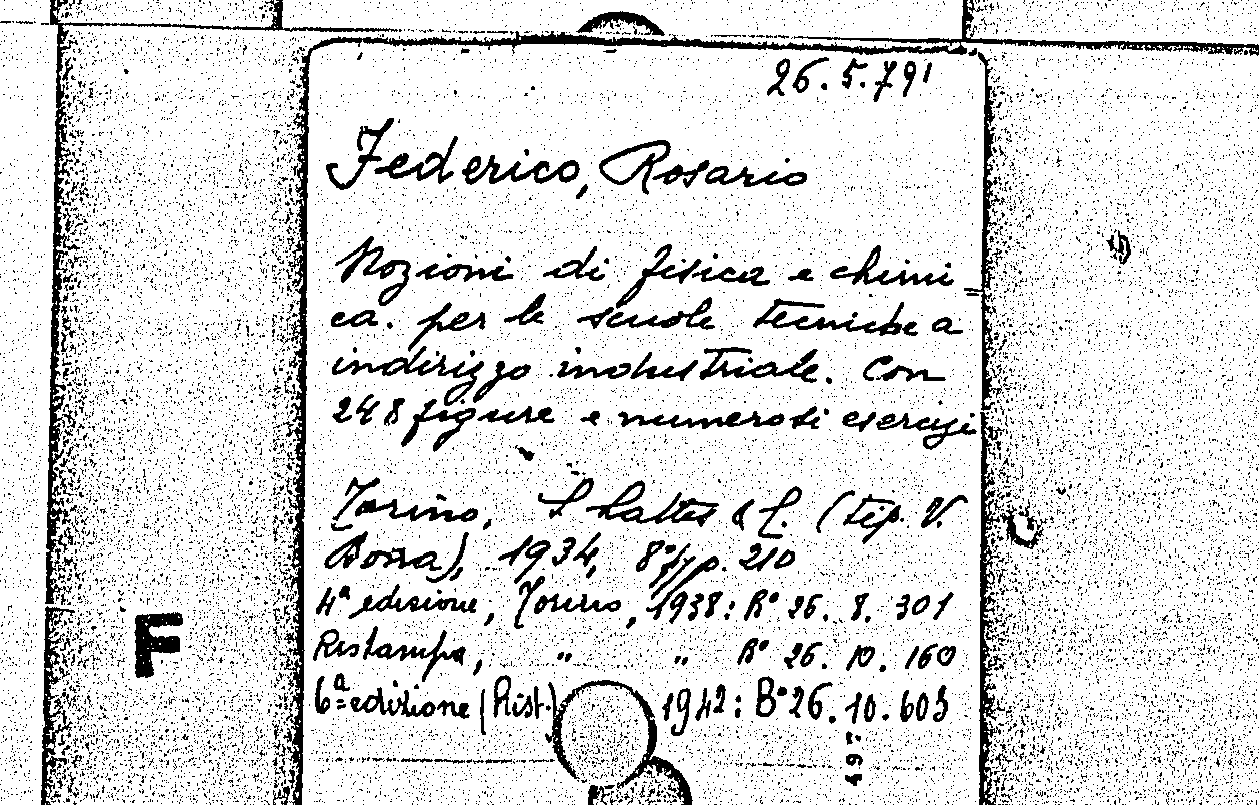 26.5.791
Federico, Rosario
Nozioni di fisica e chimi=
ca. per le scuole tecniche a
indirizzo industriale. Con
248 figure e numerosi esercizi
Torino, S. Lattes & C. (tip. V.
Bona), 1934, 8°, p. 210
4ª edizione, Torino, 1938: B° 26. 8. 301
Ristampa, " " B° 26. 10. 160
6ª edizione (Rist.) 1942: B° 26. 10. 603
F